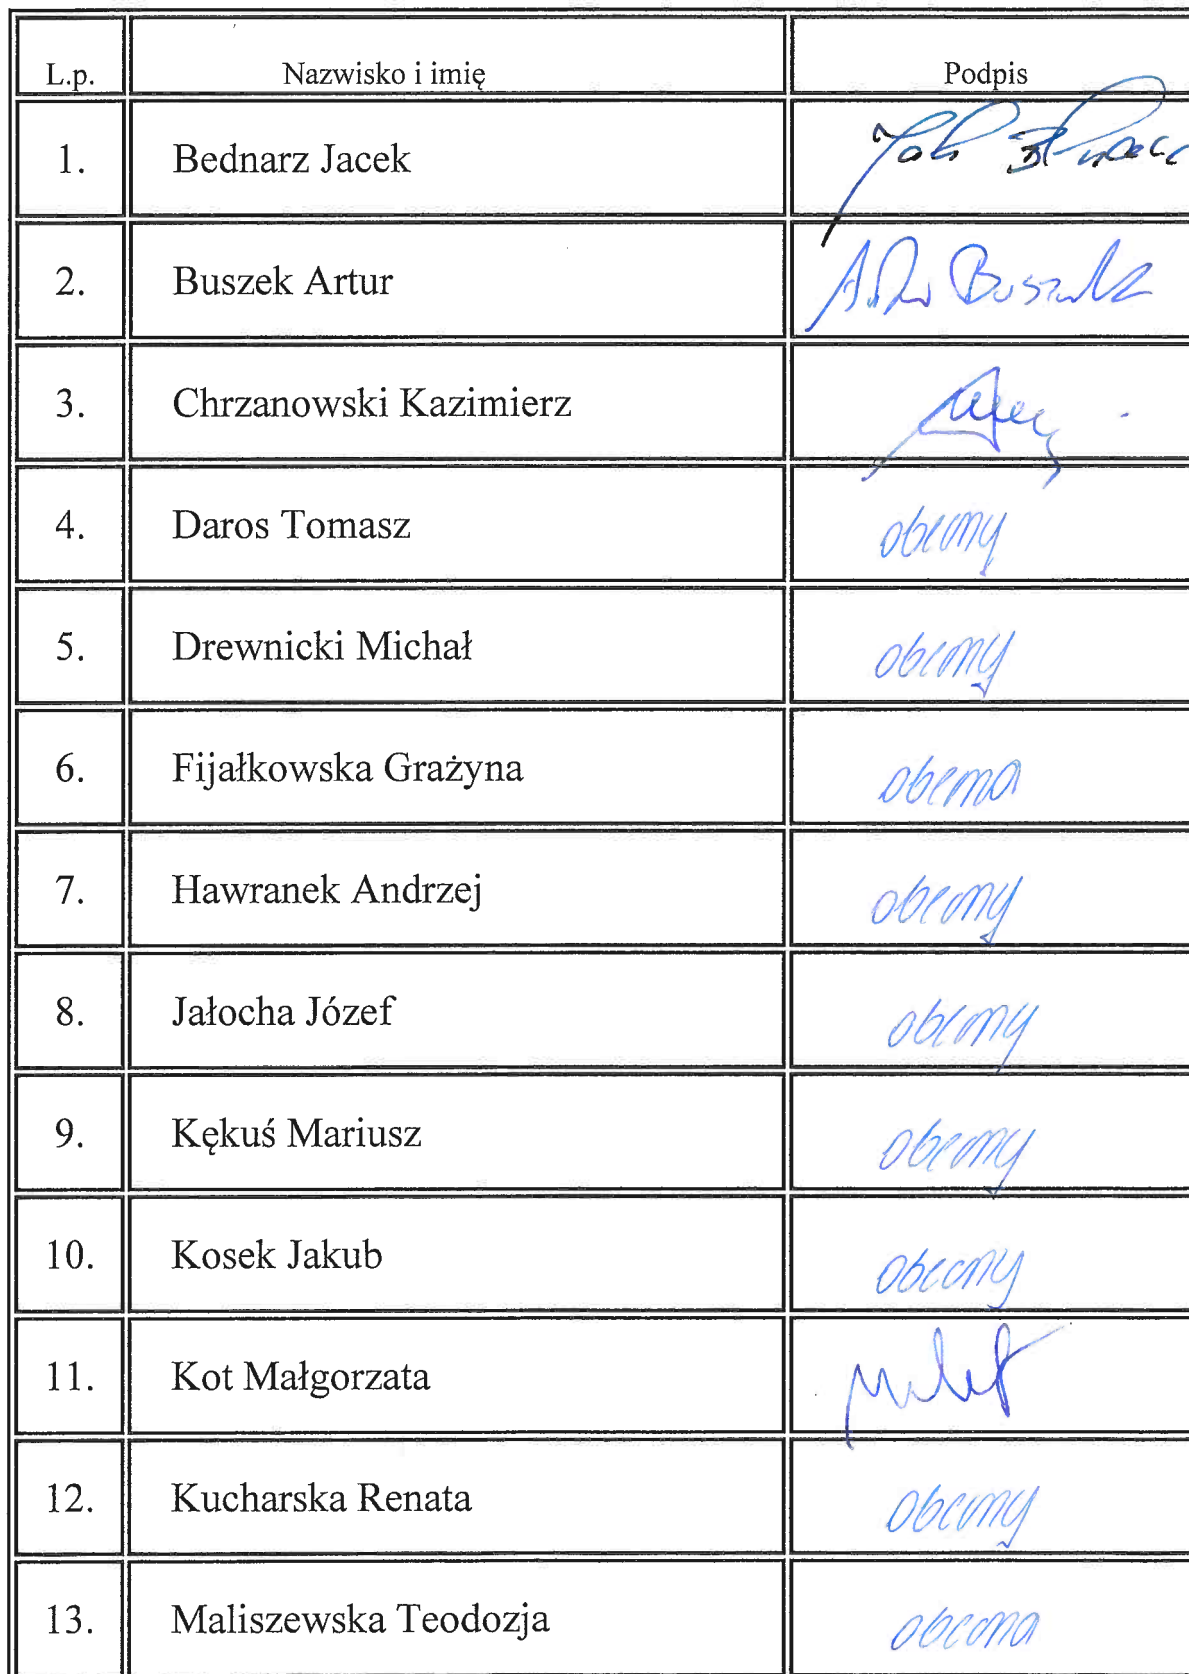 L.p. Nazwisko i imię Podpis
1. Bednarz Jacek
2. Buszek Artur Artur Buszek
3. Chrzanowski Kazimierz
4. Daros Tomasz obecny
5. Drewnicki Michał obecny
6. Fijałkowska Grażyna obecna
7. Hawranek Andrzej obecny
8. Jałocha Józef obecny
9. Kękuś Mariusz obecny
10. Kosek Jakub obecny
11. Kot Małgorzata
12. Kucharska Renata obecny
13. Maliszewska Teodozja obecna